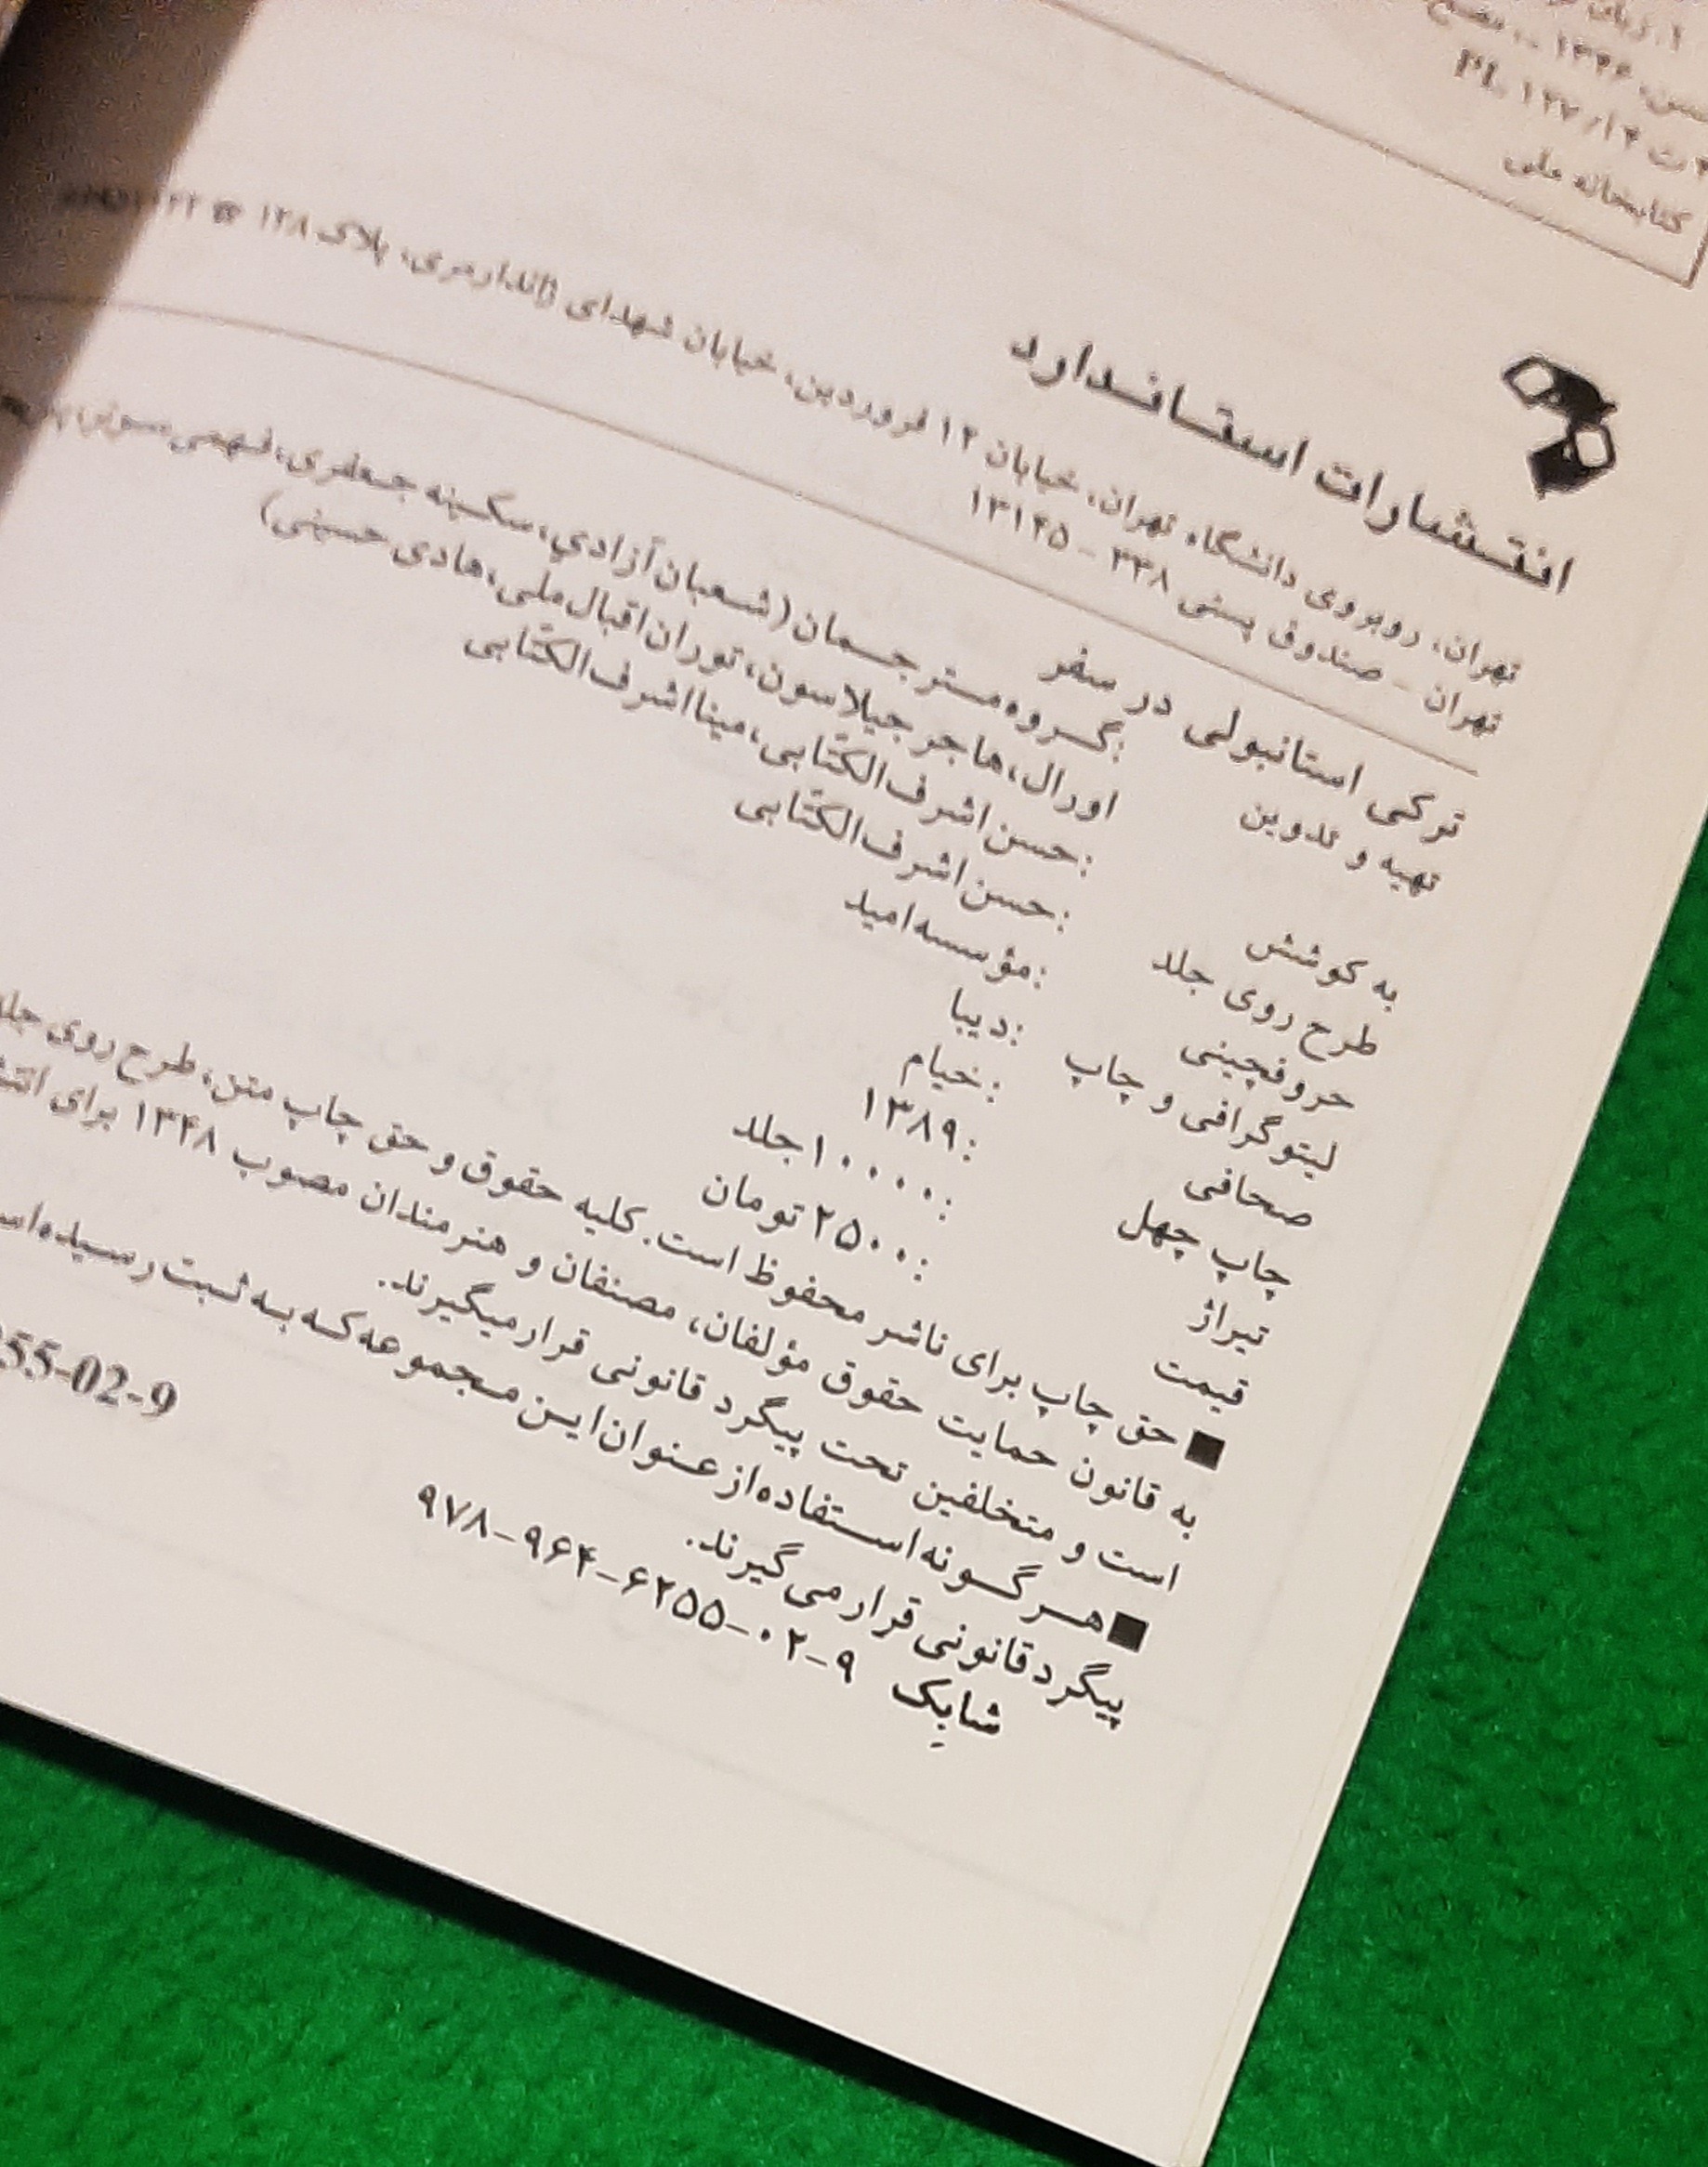 کتابخانه ملی
انتشارات استاندارد
تهران، روبروی دانشگاه تهران، خیابان ۱۲ فروردین، خیابان شهدای ژاندارمری، پلاک ۱۲۸ ☎
تهران - صندوق پستی ۳۳۸ - ۱۳۱۴۵
ترکی استانبولی در سفر
تهیه و تدوین :گروه مترجمان (شعبان آزادی، سکینه جعفری، فهمی
اورال، هاجر جیلاسون، توران اقبال ملی، هادی حسینی)
به کوشش :حسن اشرف الکتّابی، مینا اشرف الکتّابی
طرح روی جلد :حسن اشرف الکتّابی
حروفچینی :مؤسسه امید
لیتوگرافی و چاپ :دیبا
صحافی :خیام
چاپ چهل :۱۳۸۹
تیراژ :۱۰۰۰۰ جلد
قیمت :۲۵۰۰ تومان
■ حق چاپ برای ناشر محفوظ است. کلیه حقوق و حق چاپ متن، طرح روی
به قانون حمایت حقوق مؤلفان، مصنفان و هنرمندان مصوب ۱۳۴۸ برای
است و متخلفین تحت پیگرد قانونی قرار میگیرند.
■ هر گونه استفاده از عنوان این مجموعه که به ثبت رسیده
پیگرد قانونی قرار می گیرند.
شابِک ۹-۰۲-۶۲۵۵-۹۶۴-۹۷۸
55-02-9